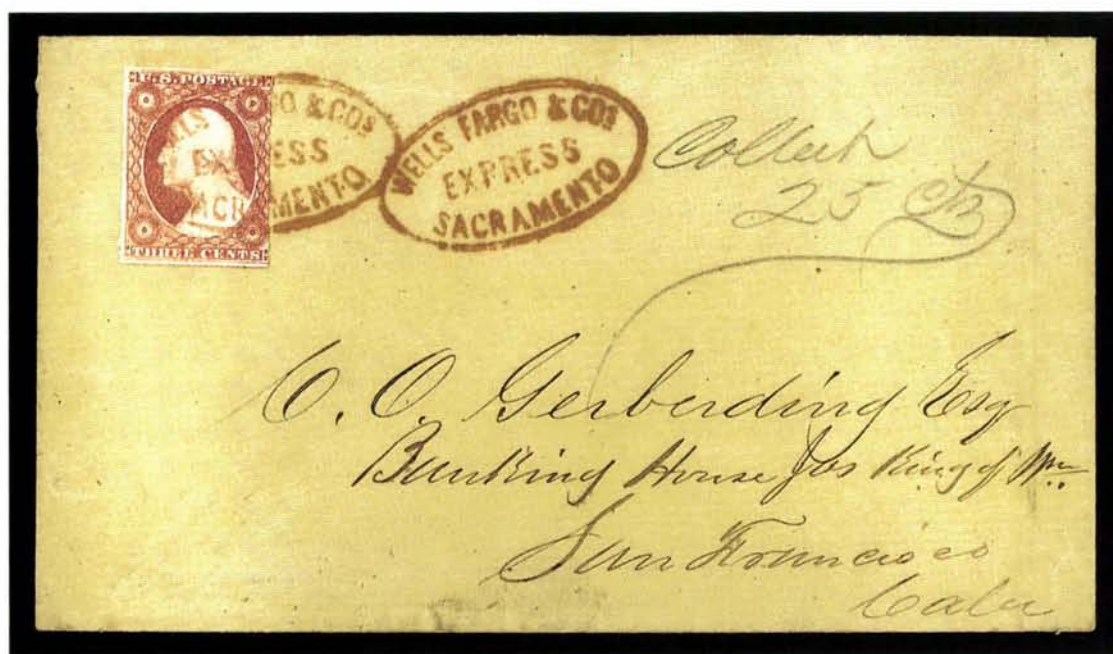 U.S. POSTAGE
THREE CENTS
WELLS FARGO & COS
EXPRESS
SACRAMENTO
WELLS FARGO & COS
EXPRESS
SACRAMENTO
Collect
25 Cts
C. O. Gerberding Esq
Banking House Jas King of Wm.
San Francisco
Cala